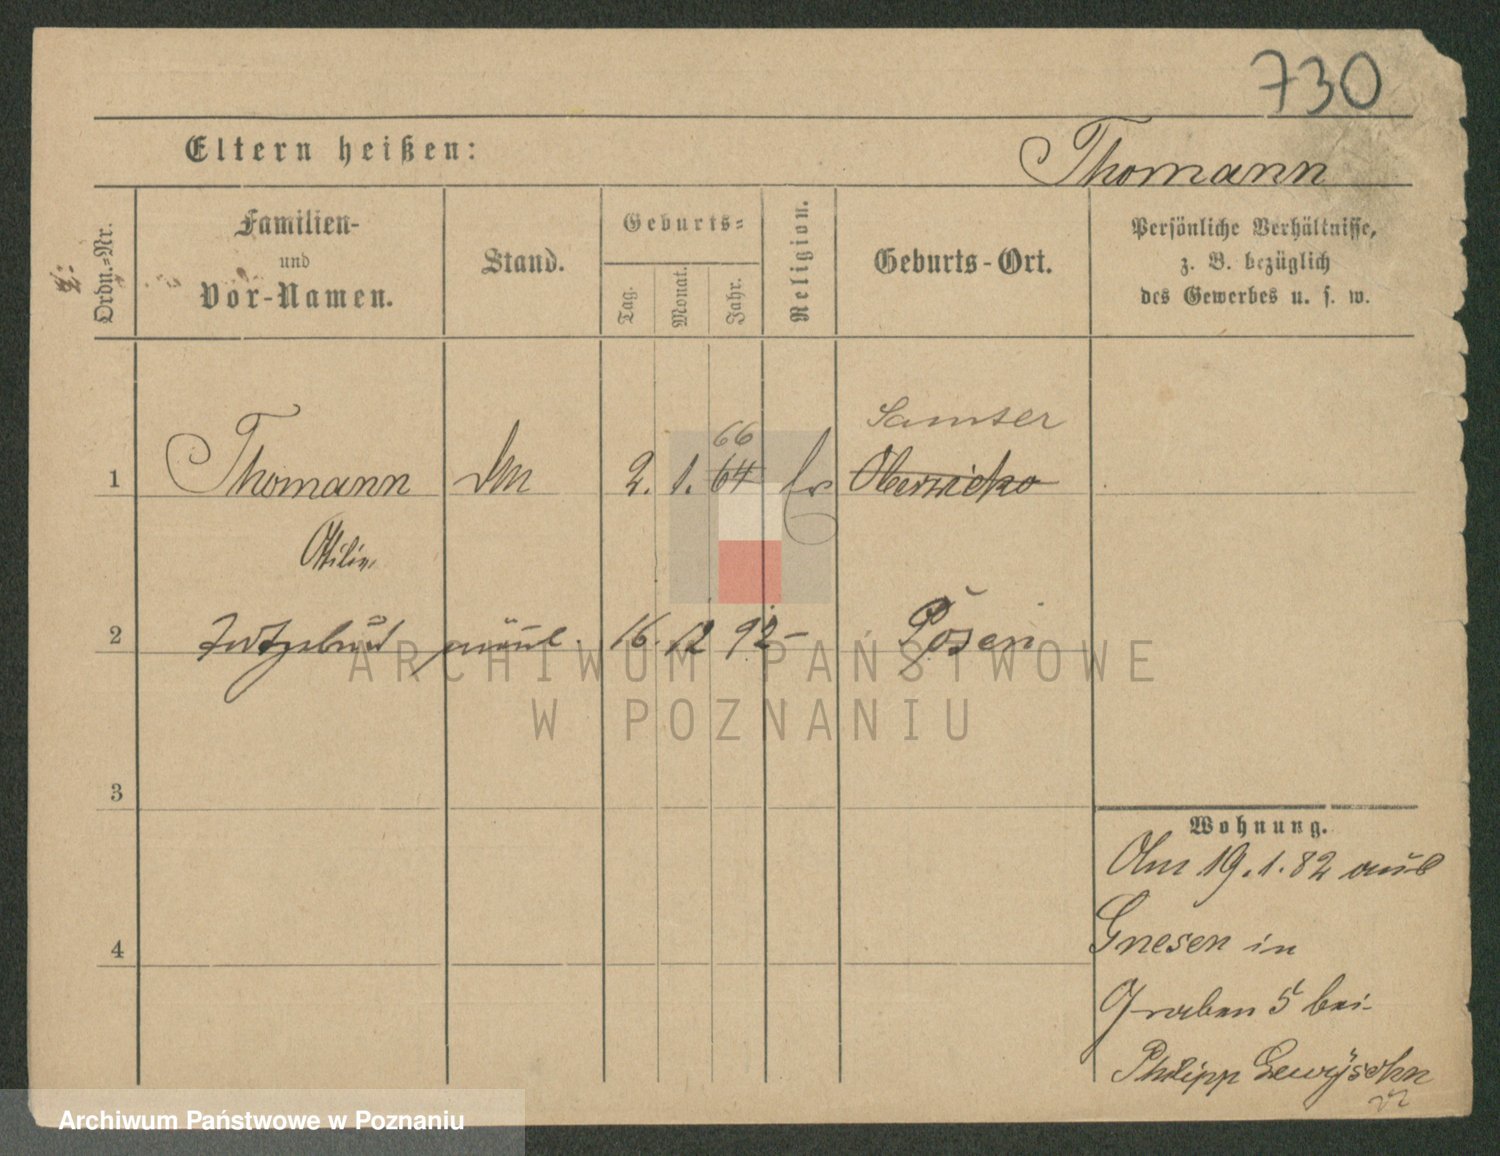 730
Eltern heißen:
Thomann
Ordn.-Nr.
Familien-
und
Vor-Namen.
Stand.
Geburts-
Tag.
Monat.
Jahr.
Religion.
Geburts-Ort.
Persönliche Verhältnisse,
z. B. bezüglich
des Gewerbes u. s. w.
Samter
66
1 Thomann 2. 1. 64
Ottilie
2 16. 12 92 Posen
3
4
Wohnung.
Am 19.1.82 aus
Gnesen in
Graben 5 bei
Philipp
ARCHIWUM PAŃSTWOWE
W POZNANIU
Archiwum Państwowe w Poznaniu